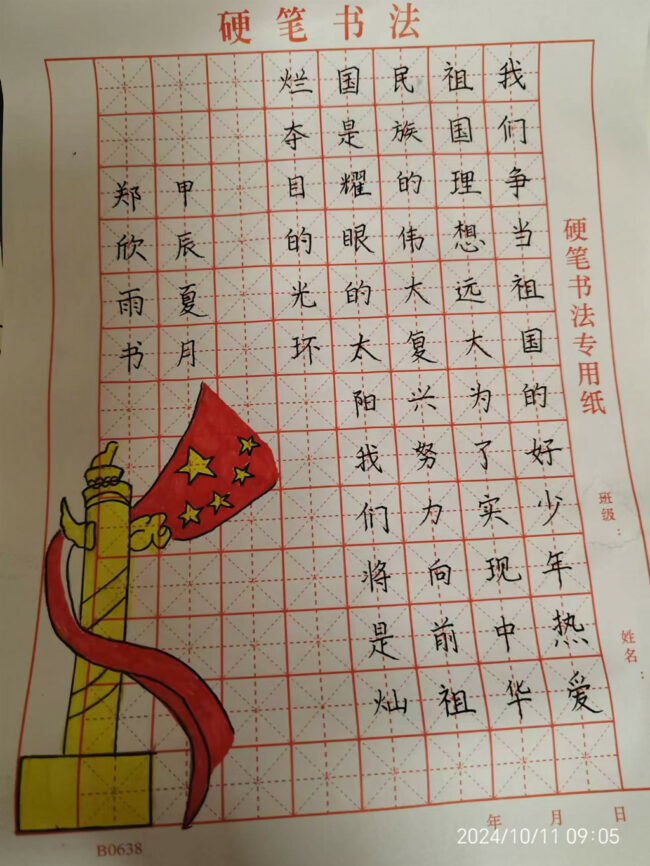 硬笔书法
我们争当祖国的好少年热爱
祖国理想远大为了实现中华
民族的伟大复兴努力向前祖
国是耀眼的太阳我们将是灿
烂夺目的光环
甲辰夏月
郑欣雨书
硬笔书法专用纸
班级:
姓名:
年 月 日
B0638
2024/10/11 09:05